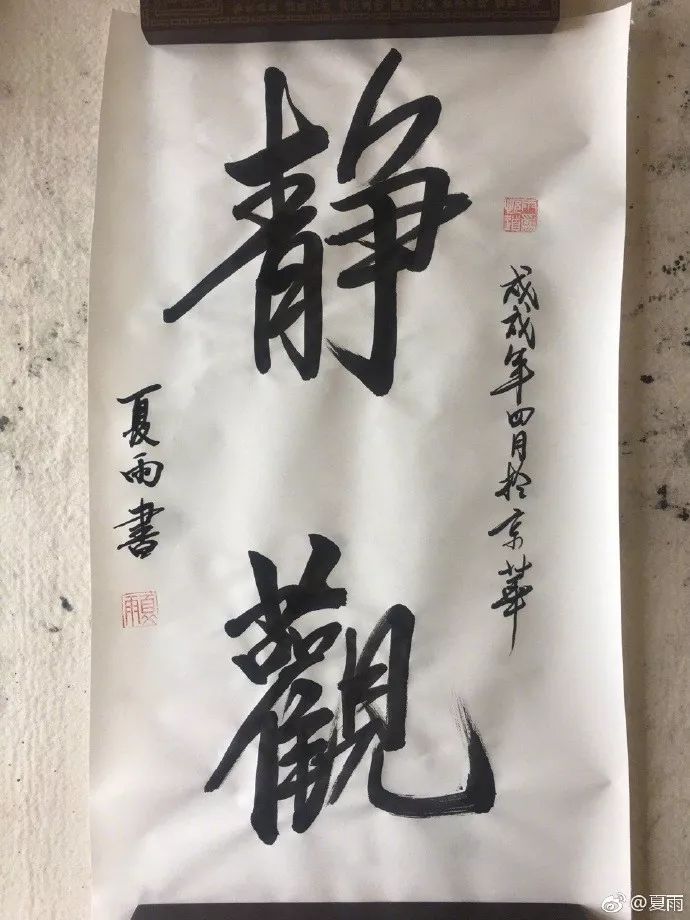 静觀
戊戌年四月於京華
夏雨書
夏雨
@夏雨